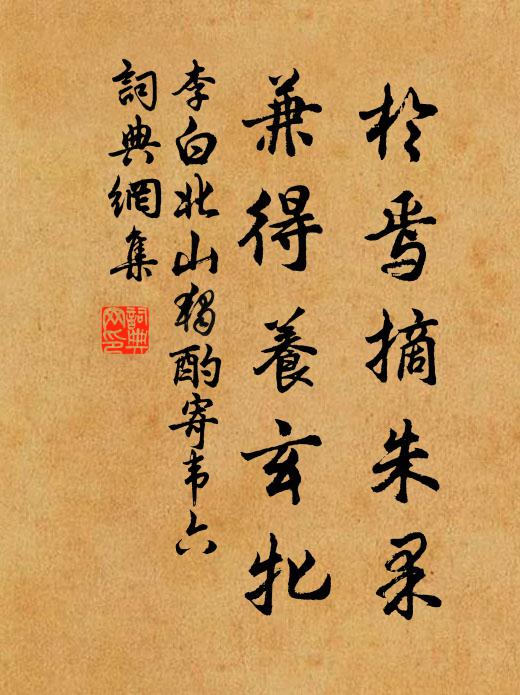 於焉摘朱果
兼得養玄牝
李白北山独酌寄韦六
詞典網集
詞典網印